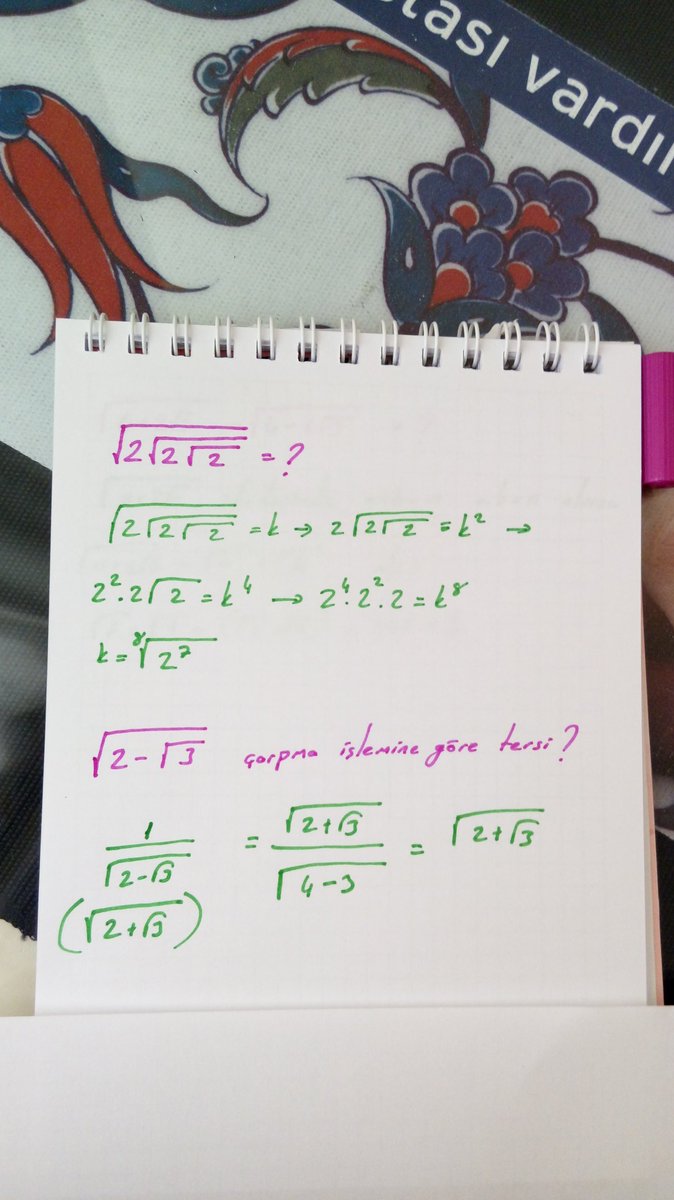 tası vardır
√(2√(2√2)) = ?
√(2√(2√2)) = k → 2√(2√2) = k² →
2².2√2 = k⁴ → 2⁴.2².2 = k⁸
k = ⁸√(2⁷)
√(2-√3) çarpma işlemine göre tersi?
1/√(2-√3) = √(2+√3)/√(4-3) = √(2+√3)
(√(2+√3))